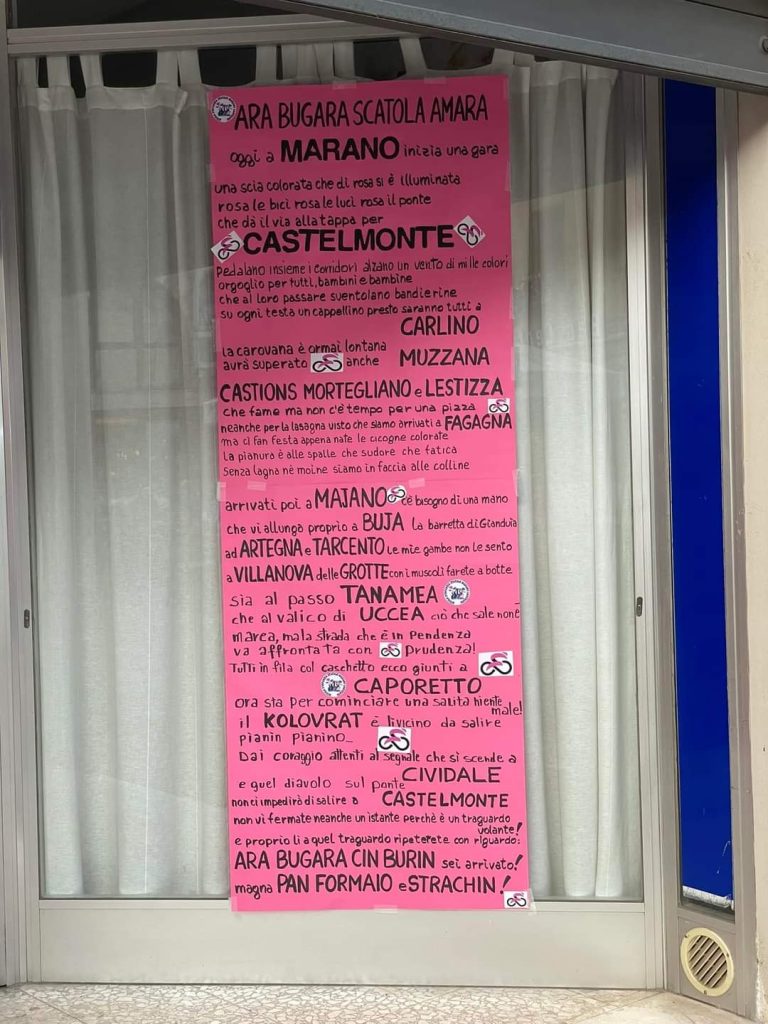 ARA BUGARA SCATOLA AMARA
oggi a MARANO inizia una gara
una scia colorata che di rosa si è illuminata
rosa le bici rosa le luci rosa il ponte
che dà il via alla tappa per
CASTELMONTE
pedalano insieme i corridori alzano un vento di mille colori
orgoglio per tutti, bambini e bambine
che al loro passare sventolano bandierine
su ogni testa un cappellino presto saranno tutti a
CARLINO
la carovana è ormai lontana
avrà superato anche MUZZANA
CASTIONS MORTEGLIANO e LESTIZZA
che fame ma non c'è tempo per una pizza
neanche per la lasagna visto che siamo arrivati a FAGAGNA
ma ci fan festa appena nate le cicogne colorate
la pianura è alle spalle che sudore che fatica
senza lagna nè moine siamo in faccia alle colline
arrivati poi a MAJANO c'è bisogno di una mano
che vi allunga proprio a BUJA la barretta di Gianduia
ad ARTEGNA e TARCENTO le mie gambe non le sento
a VILLANOVA delle GROTTE con i muscoli farete a botte
sia al passo TANAMEA
che al valico di UCCEA ciò che sale non è
marea, ma la strada che è in pendenza
va affrontata con prudenza!
Tutti in fila col caschetto ecco giunti a
CAPORETTO
ora sta per cominciare una salita niente
male!
il KOLOVRAT è lì vicino da salire
pianin pianino_
Dai coraggio attenti al segnale che si scende a
CIVIDALE
e quel diavolo sul ponte
non ci impedirà di salire a CASTELMONTE
non vi fermate neanche un istante perchè è un traguardo
volante!
e proprio lì a quel traguardo ripeterete con riguardo:
ARA BUGARA CIN BURIN sei arrivato!
magna PAN FORMAIO e STRACHIN!